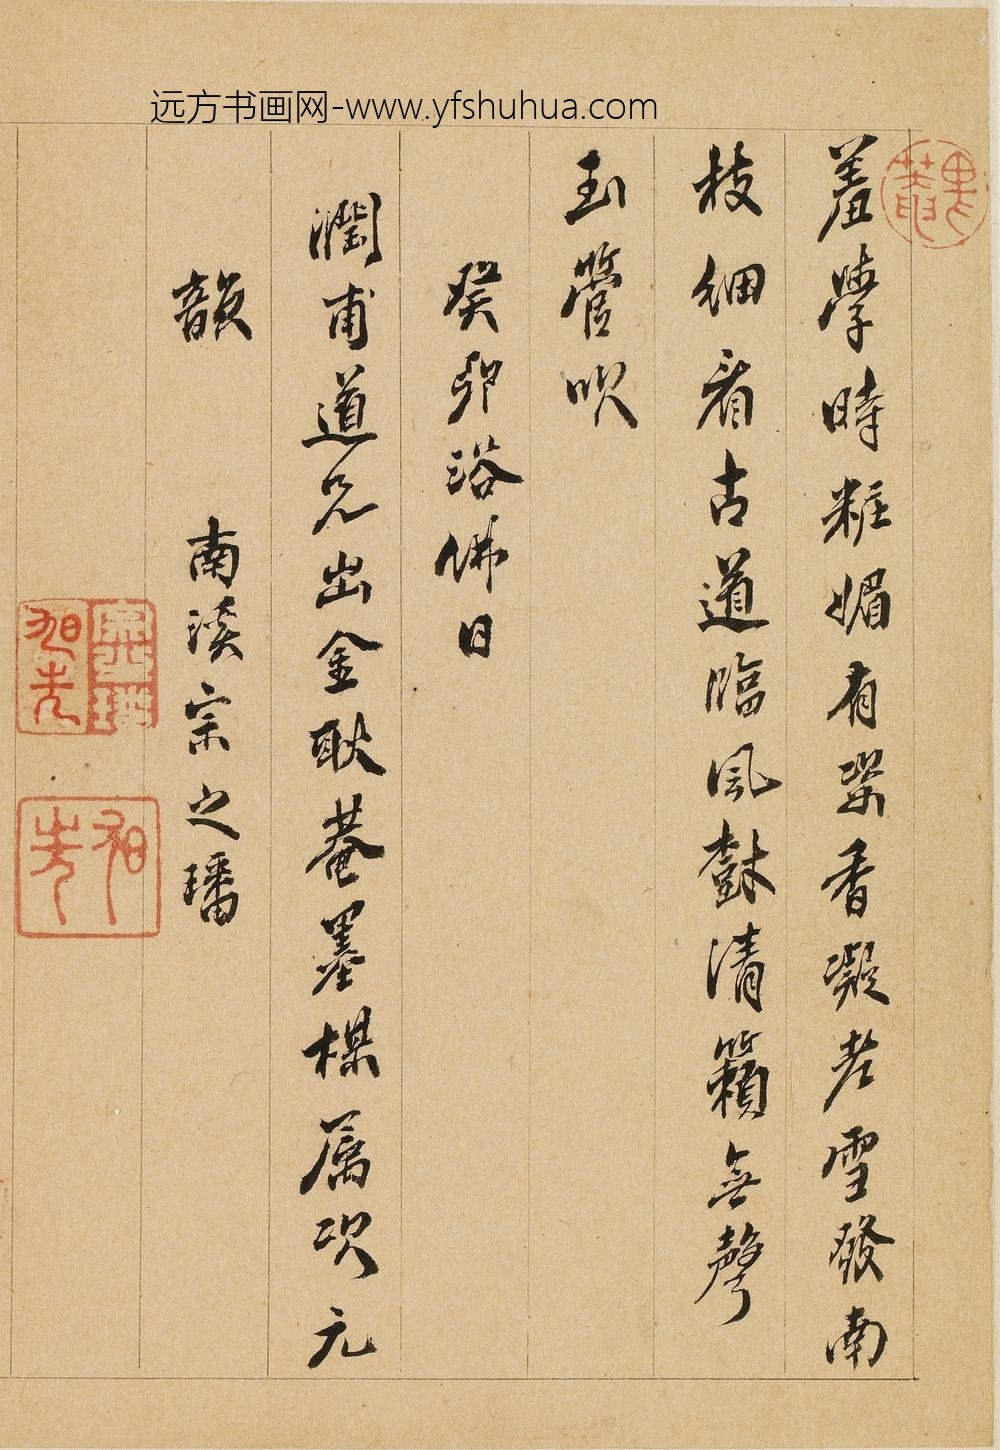 远方书画网-www.yfshuhua.com
羞學時粧媚有梁香凝老雪發南
枝細看古道臨風龢清籟無聲
玉管吹
癸卯浴佛日
潤甫道兄出金耿菴墨楳属次元
韻
南溪宗之璠